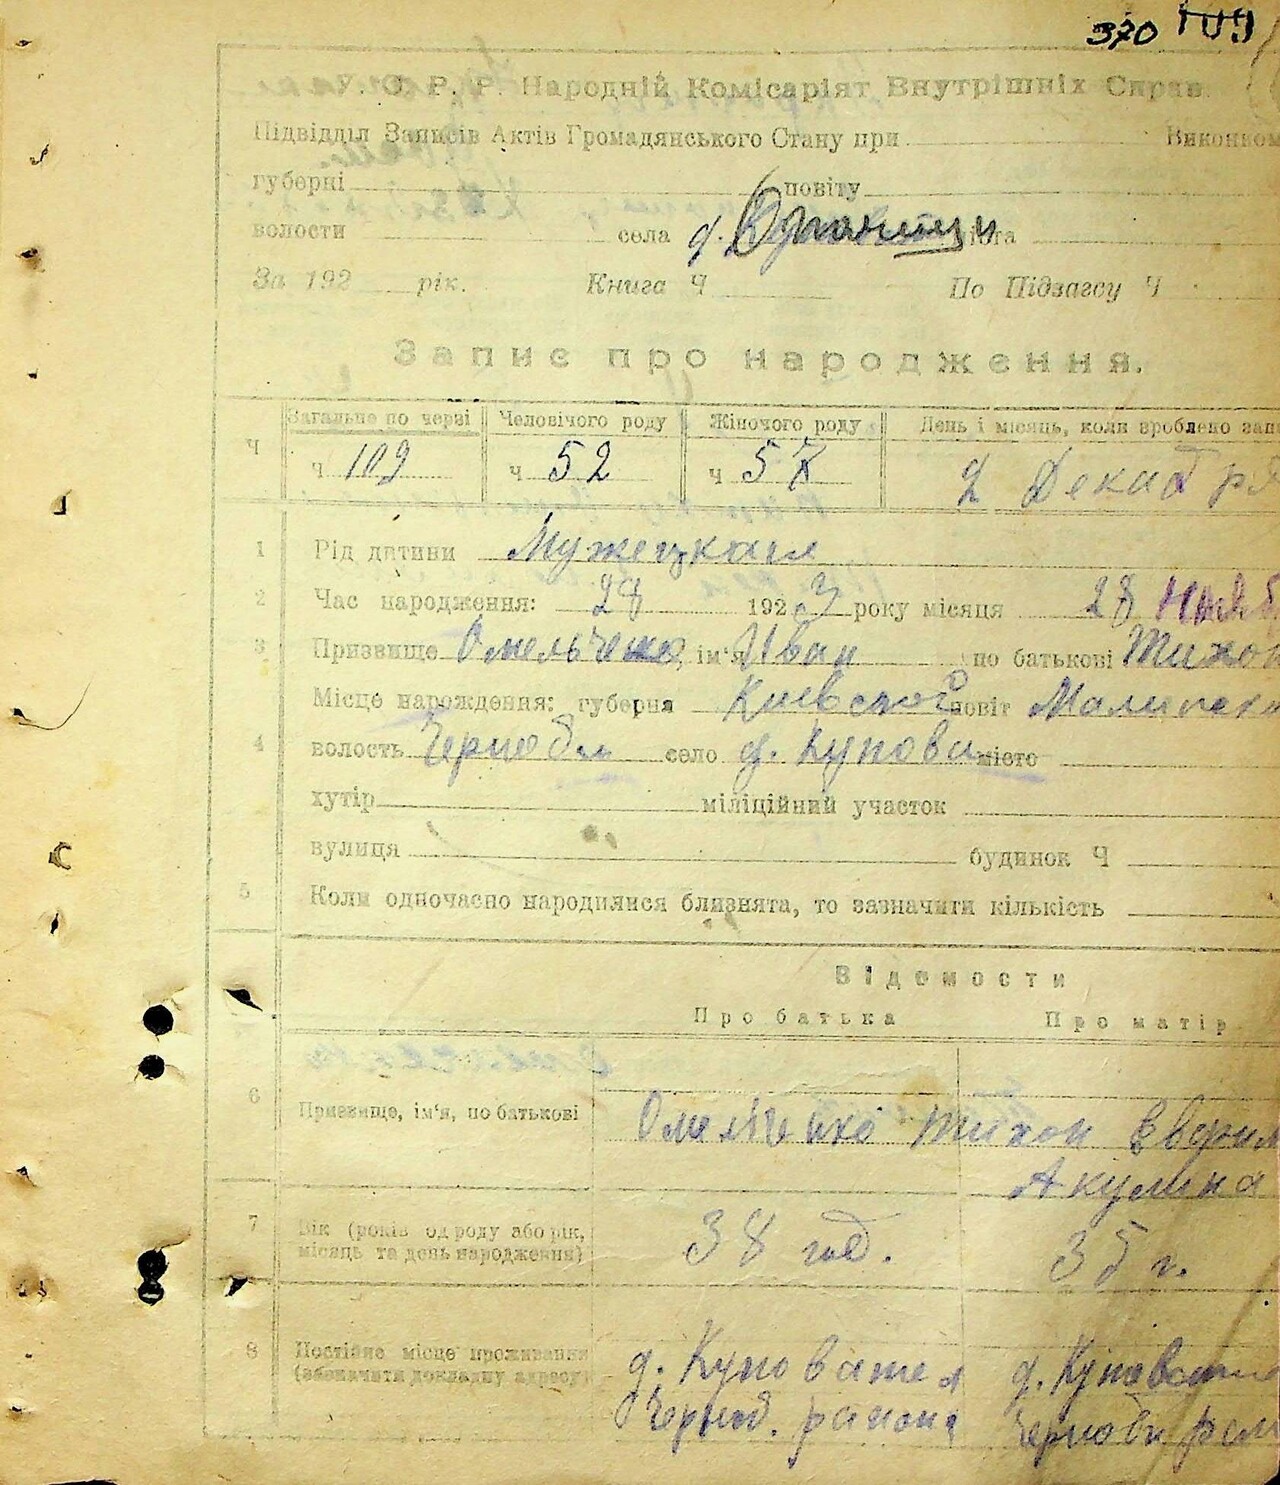 370 109
У. С. Р. Р. Народній Комісаріят Внутрішніх Справ
Підвідділ Записів Актів Громадянського Стану при Виконком
губерні повіту
волости села д. міста
За 192 рік. Книга Ч По Підзагсу Ч
Запис про народження.
Ч Загальне по черзі Человічого роду Жіночого роду День і місяць, коли зроблено запи
ч 109 ч 52 ч 57 2 Декабря
1 Рід дитини Мужецкая
2 Час народження: 28 1923 року місяця 28 Нояб
3 Призвище Омельченко ім'я Иван по батькові Тихон
Місце народження: губерня Киевской повіт Малинск
4 волость Чернобл село д. Купова місто
хутір міліційний участок
вулиця будинок Ч
5 Коли одночасно народилися близнята, то зазначити кількість
Відомости
Про батька Про матір
6 Призвище, ім'я, по батькові Омельченко Тихон Ефим
Акулина
7 Вік (років од роду або рік, 38 год. 35 г.
місяць та день народження)
8 Постійне місце проживання д. Куповател д. Куповат
(зазначити докладну адресу) Черноб. района Чернобл